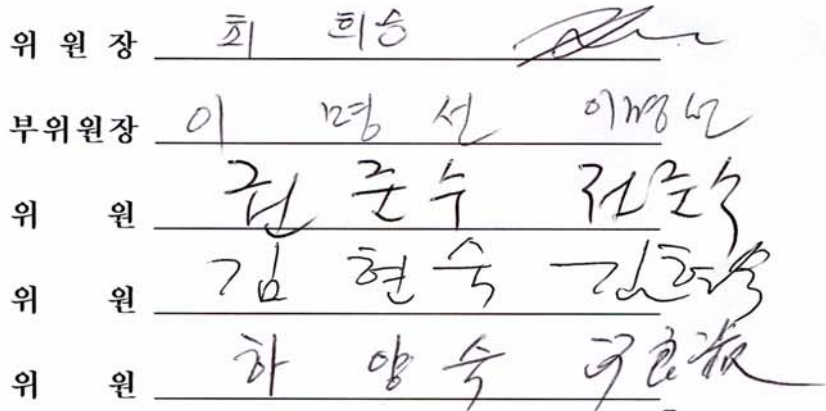 위 원 장 최 희승
부위원장 이 명 선 이명선
위 원 권 준 수 권준수
위 원 김 현 숙 김현숙
위 원 하 양 숙